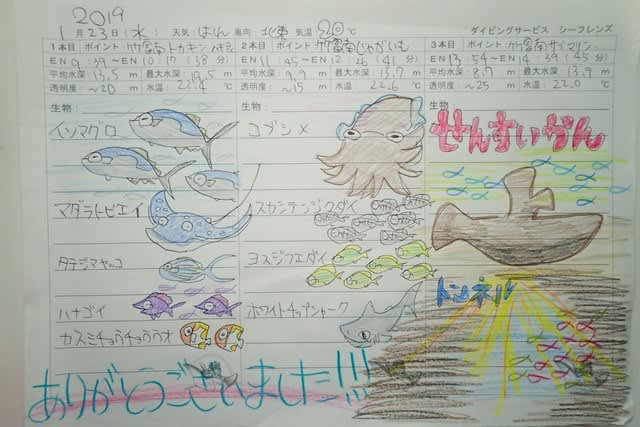 2019
1月23日(水) 天気:はれ 風向:北東 気温:20℃ ダイビングサービス シーフレンズ
1本目 ポイント:竹富南 2本目 ポイント:竹富南じゃがいも 3本目 ポイント:竹富南サブマリン
EN 9:39〜EN 10:17(38分) EN 11:45〜EN 12:26(41分) EN 13:54〜EN 14:39(45分)
平均水深:13.5m 最大水深:19.5m 平均水深:9.9m 最大水深:13.7m 平均水深:8.7m 最大水深:13.9m
透明度:〜20m 水温:22.4℃ 透明度:〜15m 水温:22.6℃ 透明度:〜25m 水温:22.0℃
生物: 生物: 生物:
イソマグロ コブシメ せんすいかん
マダラトビエイ スカシテンジクダイ
タテジマヤッコ ヨスジフエダイ トンネル
ハナゴイ ホワイトチップシャーク
カスミチョウチョウウオ
ありがとうございました!!!